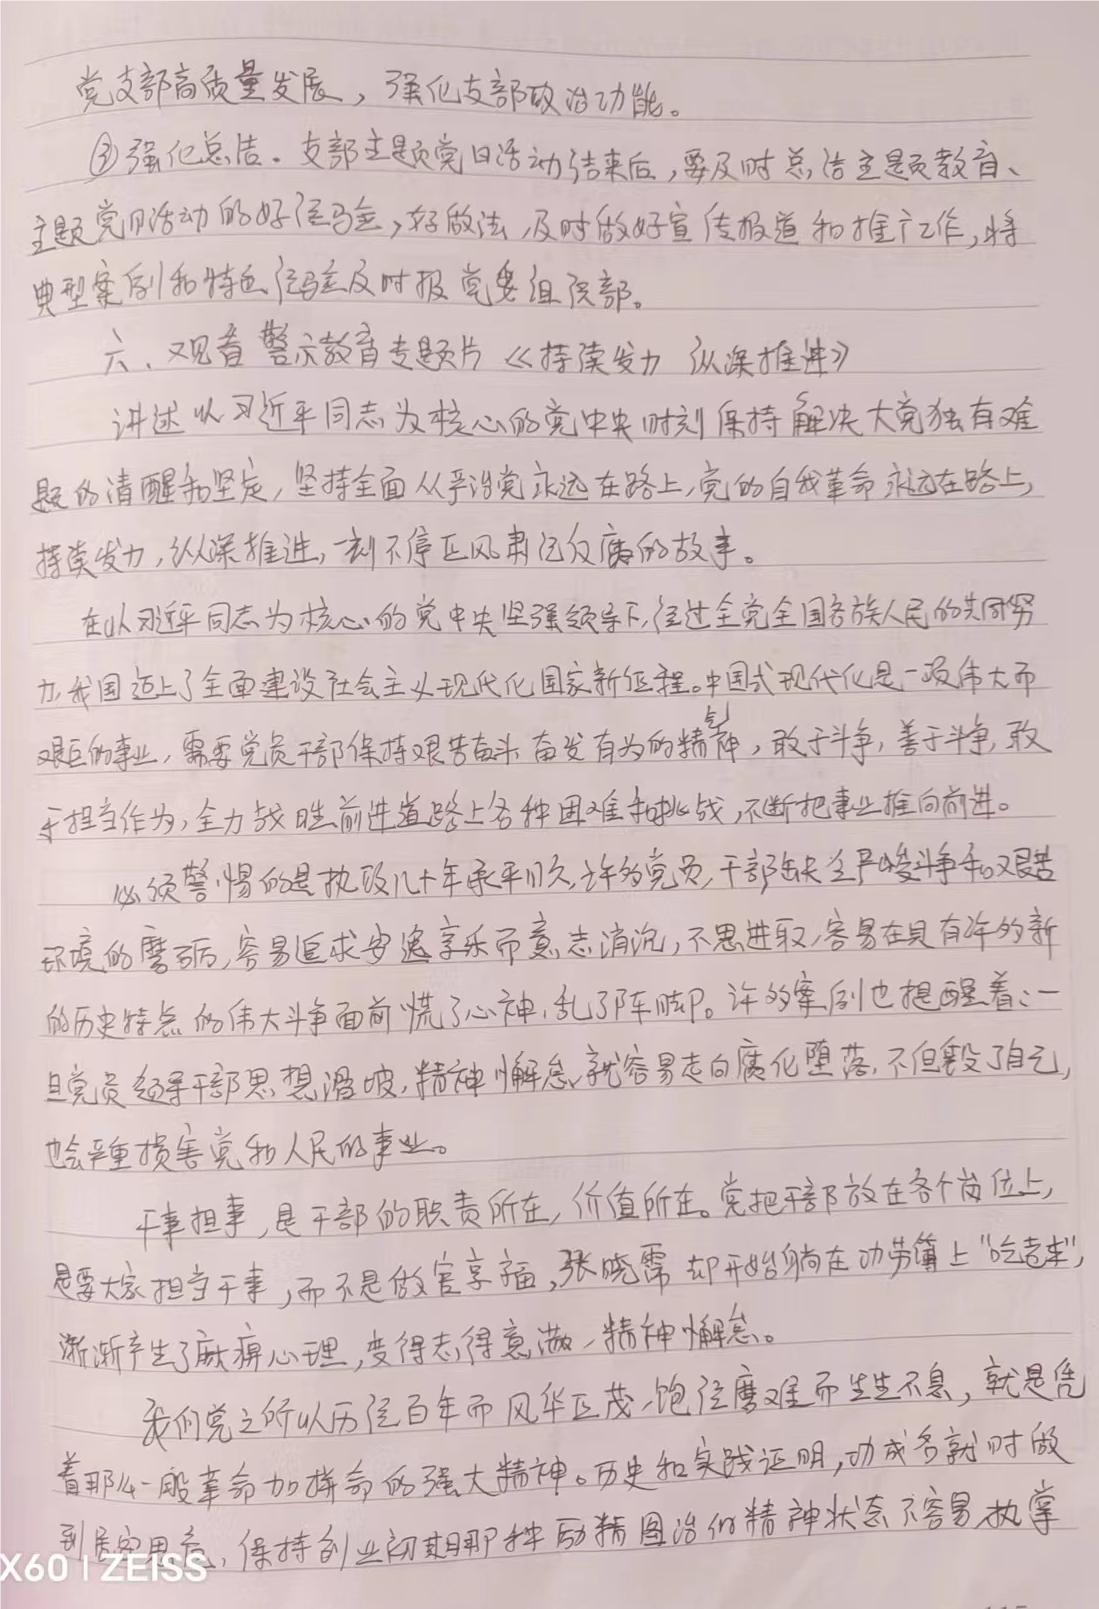 党支部高质量发展，强化支部政治功能。
③强化总结。支部主题党日活动结束后，要及时总结主题教育、
主题党日活动的好经验，好做法，及时做好宣传报道和推广工作，将
典型案例和特色经验及时报党委组织部。
六、观看警示教育专题片《持续发力 纵深推进》
讲述以习近平同志为核心的党中央时刻保持解决大党独有难
题的清醒和坚定，坚持全面从严治党永远在路上，党的自我革命永远在路上，
持续发力，纵深推进，一刻不停正风肃纪反腐的故事。
在以习近平同志为核心的党中央坚强领导下，经过全党全国各族人民的共同努
力，我国迈上了全面建设社会主义现代化国家新征程。中国式现代化是一项伟大而
艰巨的事业，需要党员干部保持艰苦奋斗 奋发有为的精气神，敢于斗争，善于斗争，敢
于担当作为，全力战胜前进道路上各种困难和挑战，不断把事业推向前进。
必须警惕的是执政几十年承平日久，许多党员，干部缺乏严峻斗争和艰苦
环境的磨砺，容易追求安逸享乐而意志消沉，不思进取，容易在具有许多新
的历史特点的伟大斗争面前慌了心神，乱了阵脚。许多案例也提醒着：一
旦党员领导干部思想滑坡，精神懈怠，就容易走向腐化堕落，不但毁了自己，
也会严重损害党和人民的事业。
干事担事，是干部的职责所在，价值所在。党把干部放在各个岗位上，
是要大家担当干事，而不是做官享福，张晓霈却开始躺在功劳簿上“吃老本”，
渐渐产生了麻痹心理，变得志得意满、精神懈怠。
我们党之所以历经百年而风华正茂、饱经磨难而生生不息，就是凭
着那么一股革命加拼命的强大精神。历史和实践证明，功成名就时做
到居安思危，保持创业初期那种励精图治的精神状态不容易，执掌
X60 | ZEISS